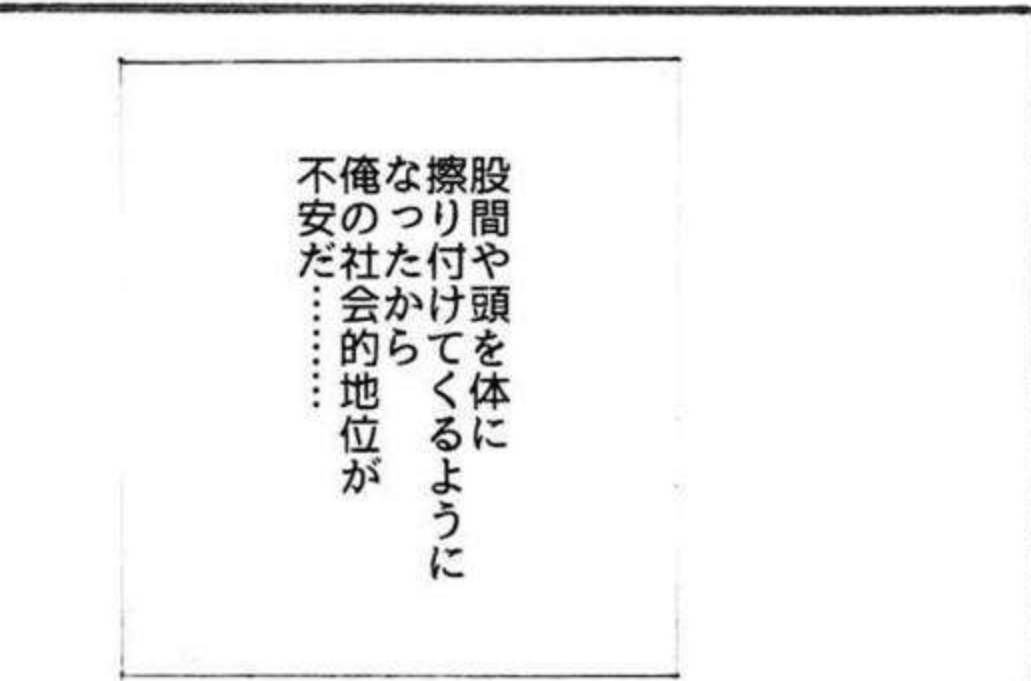 股間や頭を体に
擦り付けてくるように
なったから
俺の社会的地位が
不安だ………